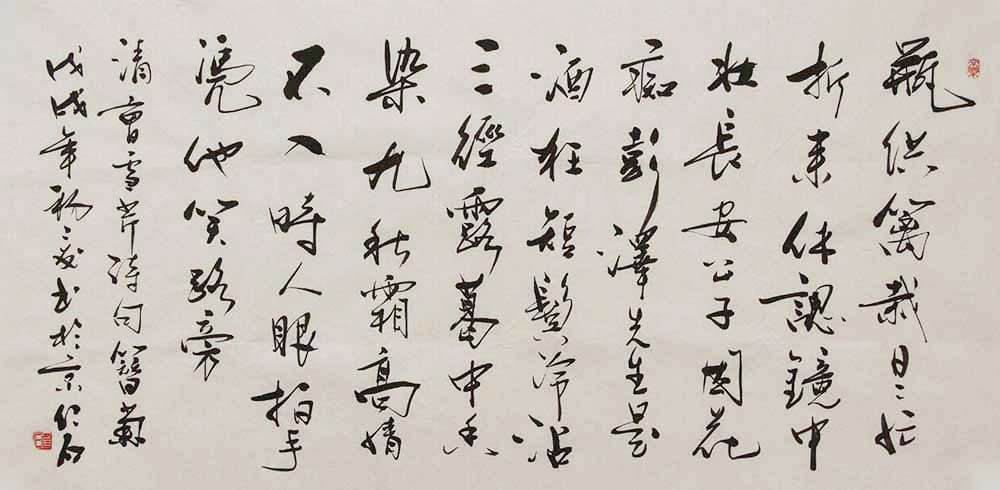 瓶供籬栽日〻忙
折来休認鏡中
妝長安公子因花
痴彭澤先生是
酒狂短鬢冷沾
三徑露葛巾香
染九秋霜高情
不入時人眼拍手
憑他笑路旁
清曹雪芹詩句簪菊
戊戌年初書於京